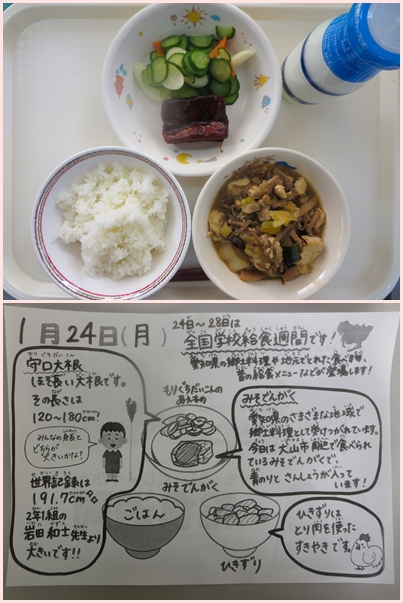 1月24日(月)
24日～28日は
全国学校給食週間です!
愛知県の郷土料理や地元でとれた食べ物、
昔の給食メニューなどが登場します!
守口大根
もりぐちだいこん
ほそ長い大根です。
その長さは
120～180cm?
みんなの身長と
どちらが
大きいかな?
世界記録は
191.7cm
2年1組の
岩田和士先生より
大きいです!!
もりぐちだいこんの
あえもの
みそでんがく
ごはん
ひきずり
みそでんがく
愛知県のさまざまな地域で
郷土料理として受けつがれています。
今日は犬山市周辺で食べられ
ているみそでんがくで、
青のりとさんしょうが入って
います!
ひきずりは
とり肉を使った
すきやきです。